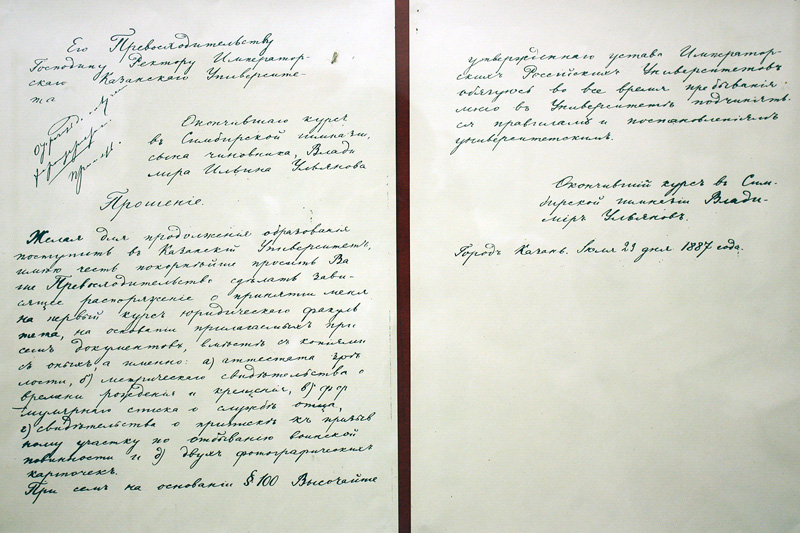 Его Превосходительству
Господину Ректору Император-
скаго Казанскаго Университе-
та
Окончившаго курсъ
въ Симбирской гимназіи,
сына чиновника, Влади
мира Ильина Ульянова
Прошеніе.
Желая для продолженія образованія
поступить въ Казанскій Университетъ,
имѣю честь покорнѣйше просить Ва
ше Превосходительство сдѣлать зави-
сящее распоряженіе о принятіи меня
на первый курсъ юридическаго факуль
тета, на основаніи прилагаемыхъ при
семъ документовъ, вмѣстѣ съ копіями
съ оныхъ, а именно: а) аттестата зрѣ
лости, б) метрическаго свидѣтельства о
времени рожденія и крещенія, в) фор
мулярнаго списка о службѣ отца,
г) свидѣтельства о припискѣ къ призыв
ному участку по отбыванію воинской
повинности и д) двухъ фотографическихъ
карточекъ.
При семъ на основаніи § 100 Высочайше
утвержденнаго устава Император-
скихъ Россійскихъ Университетовъ
обязуюсь во все время пребыванія
моего въ Университетѣ подчинять
ся правиламъ и постановленіямъ
университетскимъ.
Окончившій курсъ въ Сим-
бирской гимназіи Влади-
міръ Ульяновъ.
Городъ Казань. Іюля 29 дня 1887 года.